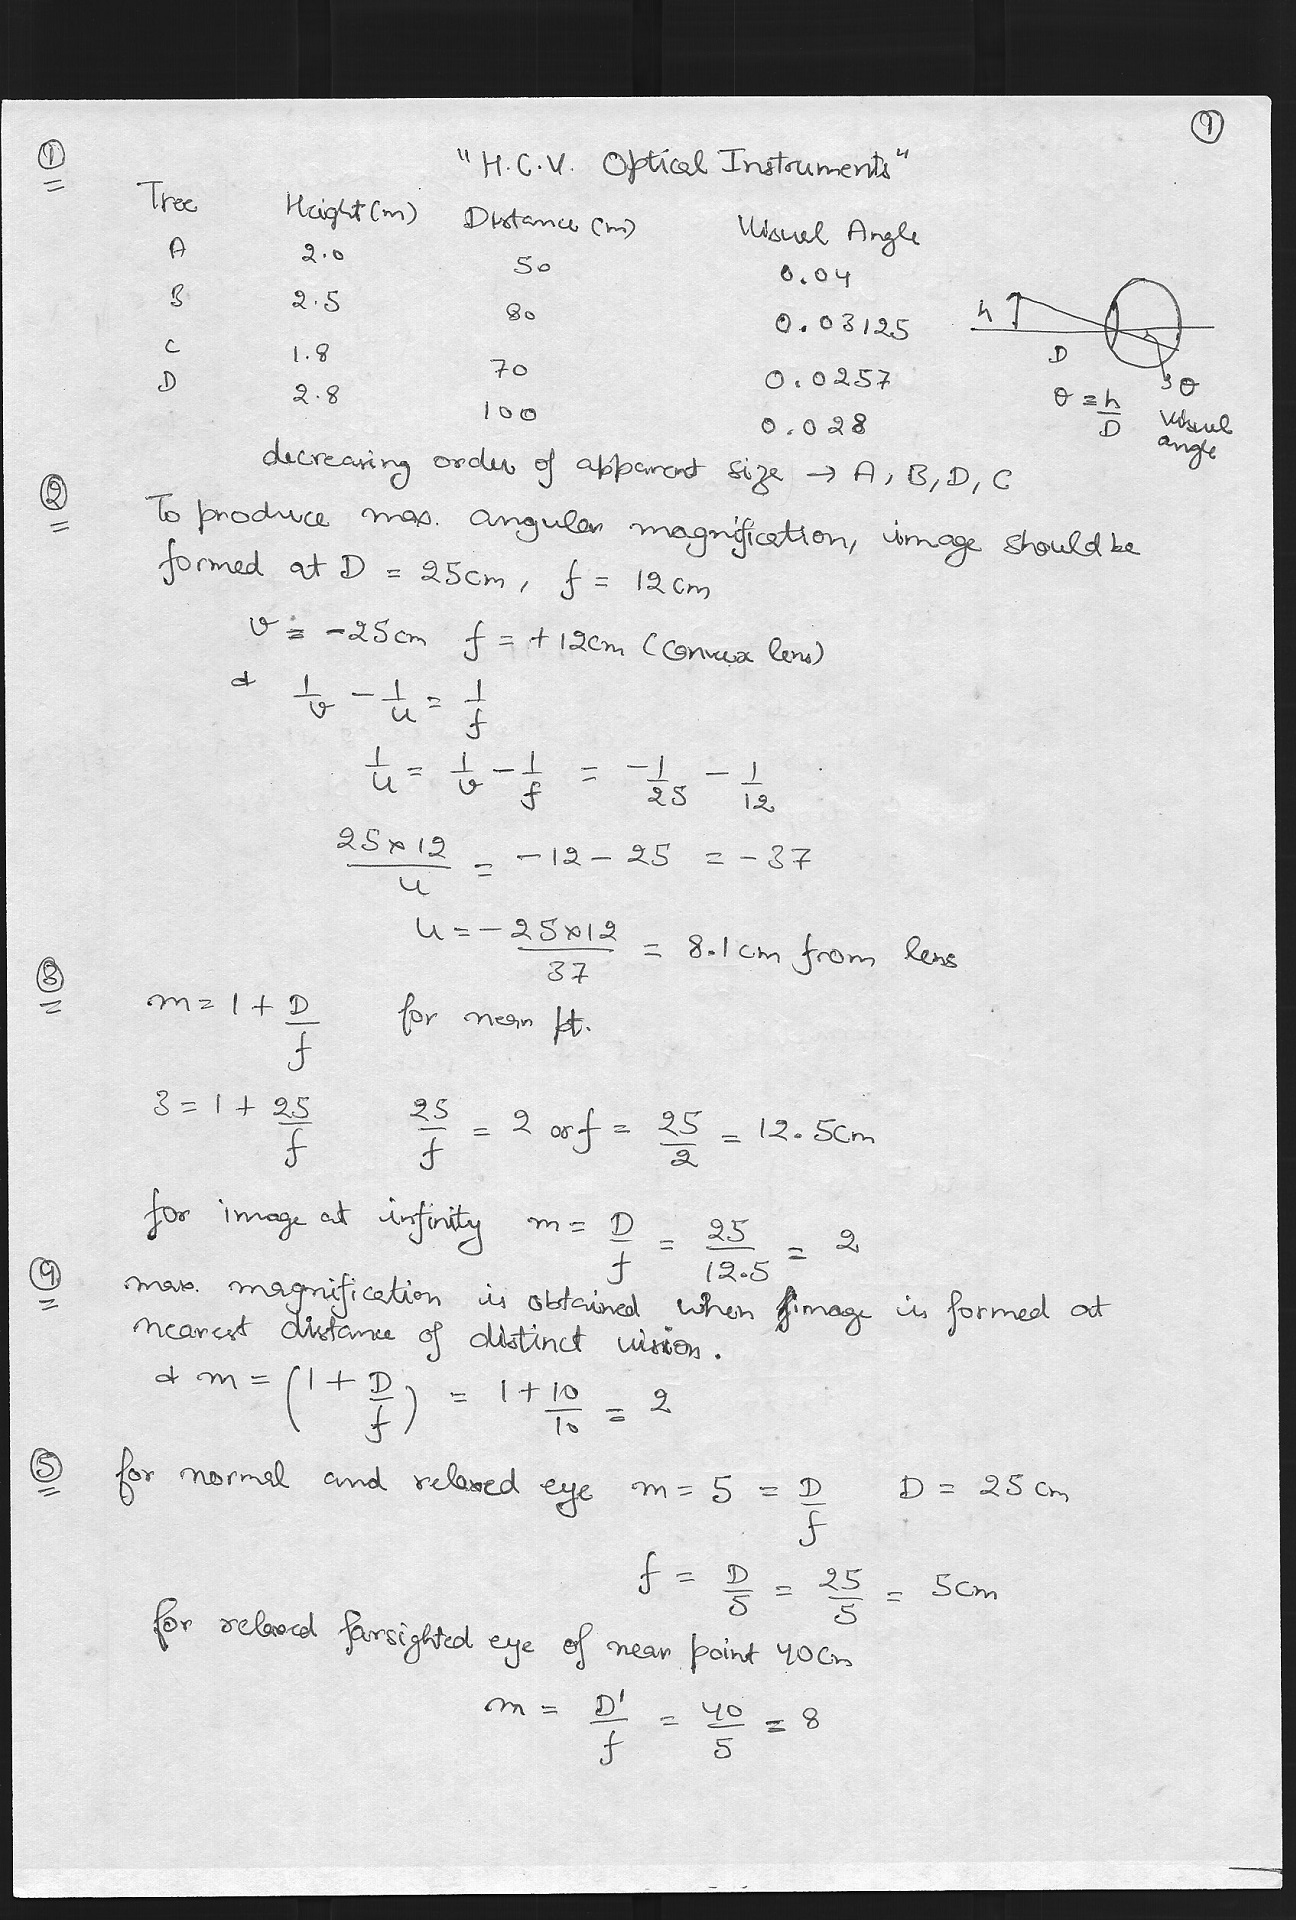 ①
① "H.C.V. Optical Instruments"
Tree Height (m) Distance (m) Visual Angle
A 2.0 50 0.04
B 2.5 80 0.03125
C 1.8 70 0.0257
D 2.8 100 0.028
h D θ
θ = h/D Visual angle
decreasing order of apparent size → A, B, D, C
② To produce max. angular magnification, image should be
formed at D = 25cm, f = 12cm
v = -25cm f = +12cm (convex lens)
& 1/v - 1/u = 1/f
1/u = 1/v - 1/f = -1/25 - 1/12
25×12/u = -12-25 = -37
u = - 25×12/37 = 8.1cm from lens
③ m = 1 + D/f for near pt.
3 = 1 + 25/f 25/f = 2 or f = 25/2 = 12.5cm
for image at infinity m = D/f = 25/12.5 = 2
④ max. magnification is obtained when image is formed at
nearest distance of distinct vision.
& m = (1 + D/f) = 1 + 10/10 = 2
⑤ for normal and relaxed eye m = 5 = D/f D = 25cm
f = D/5 = 25/5 = 5cm
for relaxed farsighted eye of near point 40cm
m = D'/f = 40/5 = 8